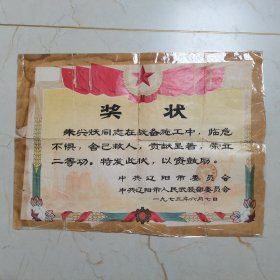 奖状
朱尖妖同志在战备施工中，临危
不惧，舍己救人，贡献显著，荣立
二等功。特发此状，以资鼓励。
中共辽阳市委员会
中共辽阳市人民武装部委员会
一九七三年六月七日